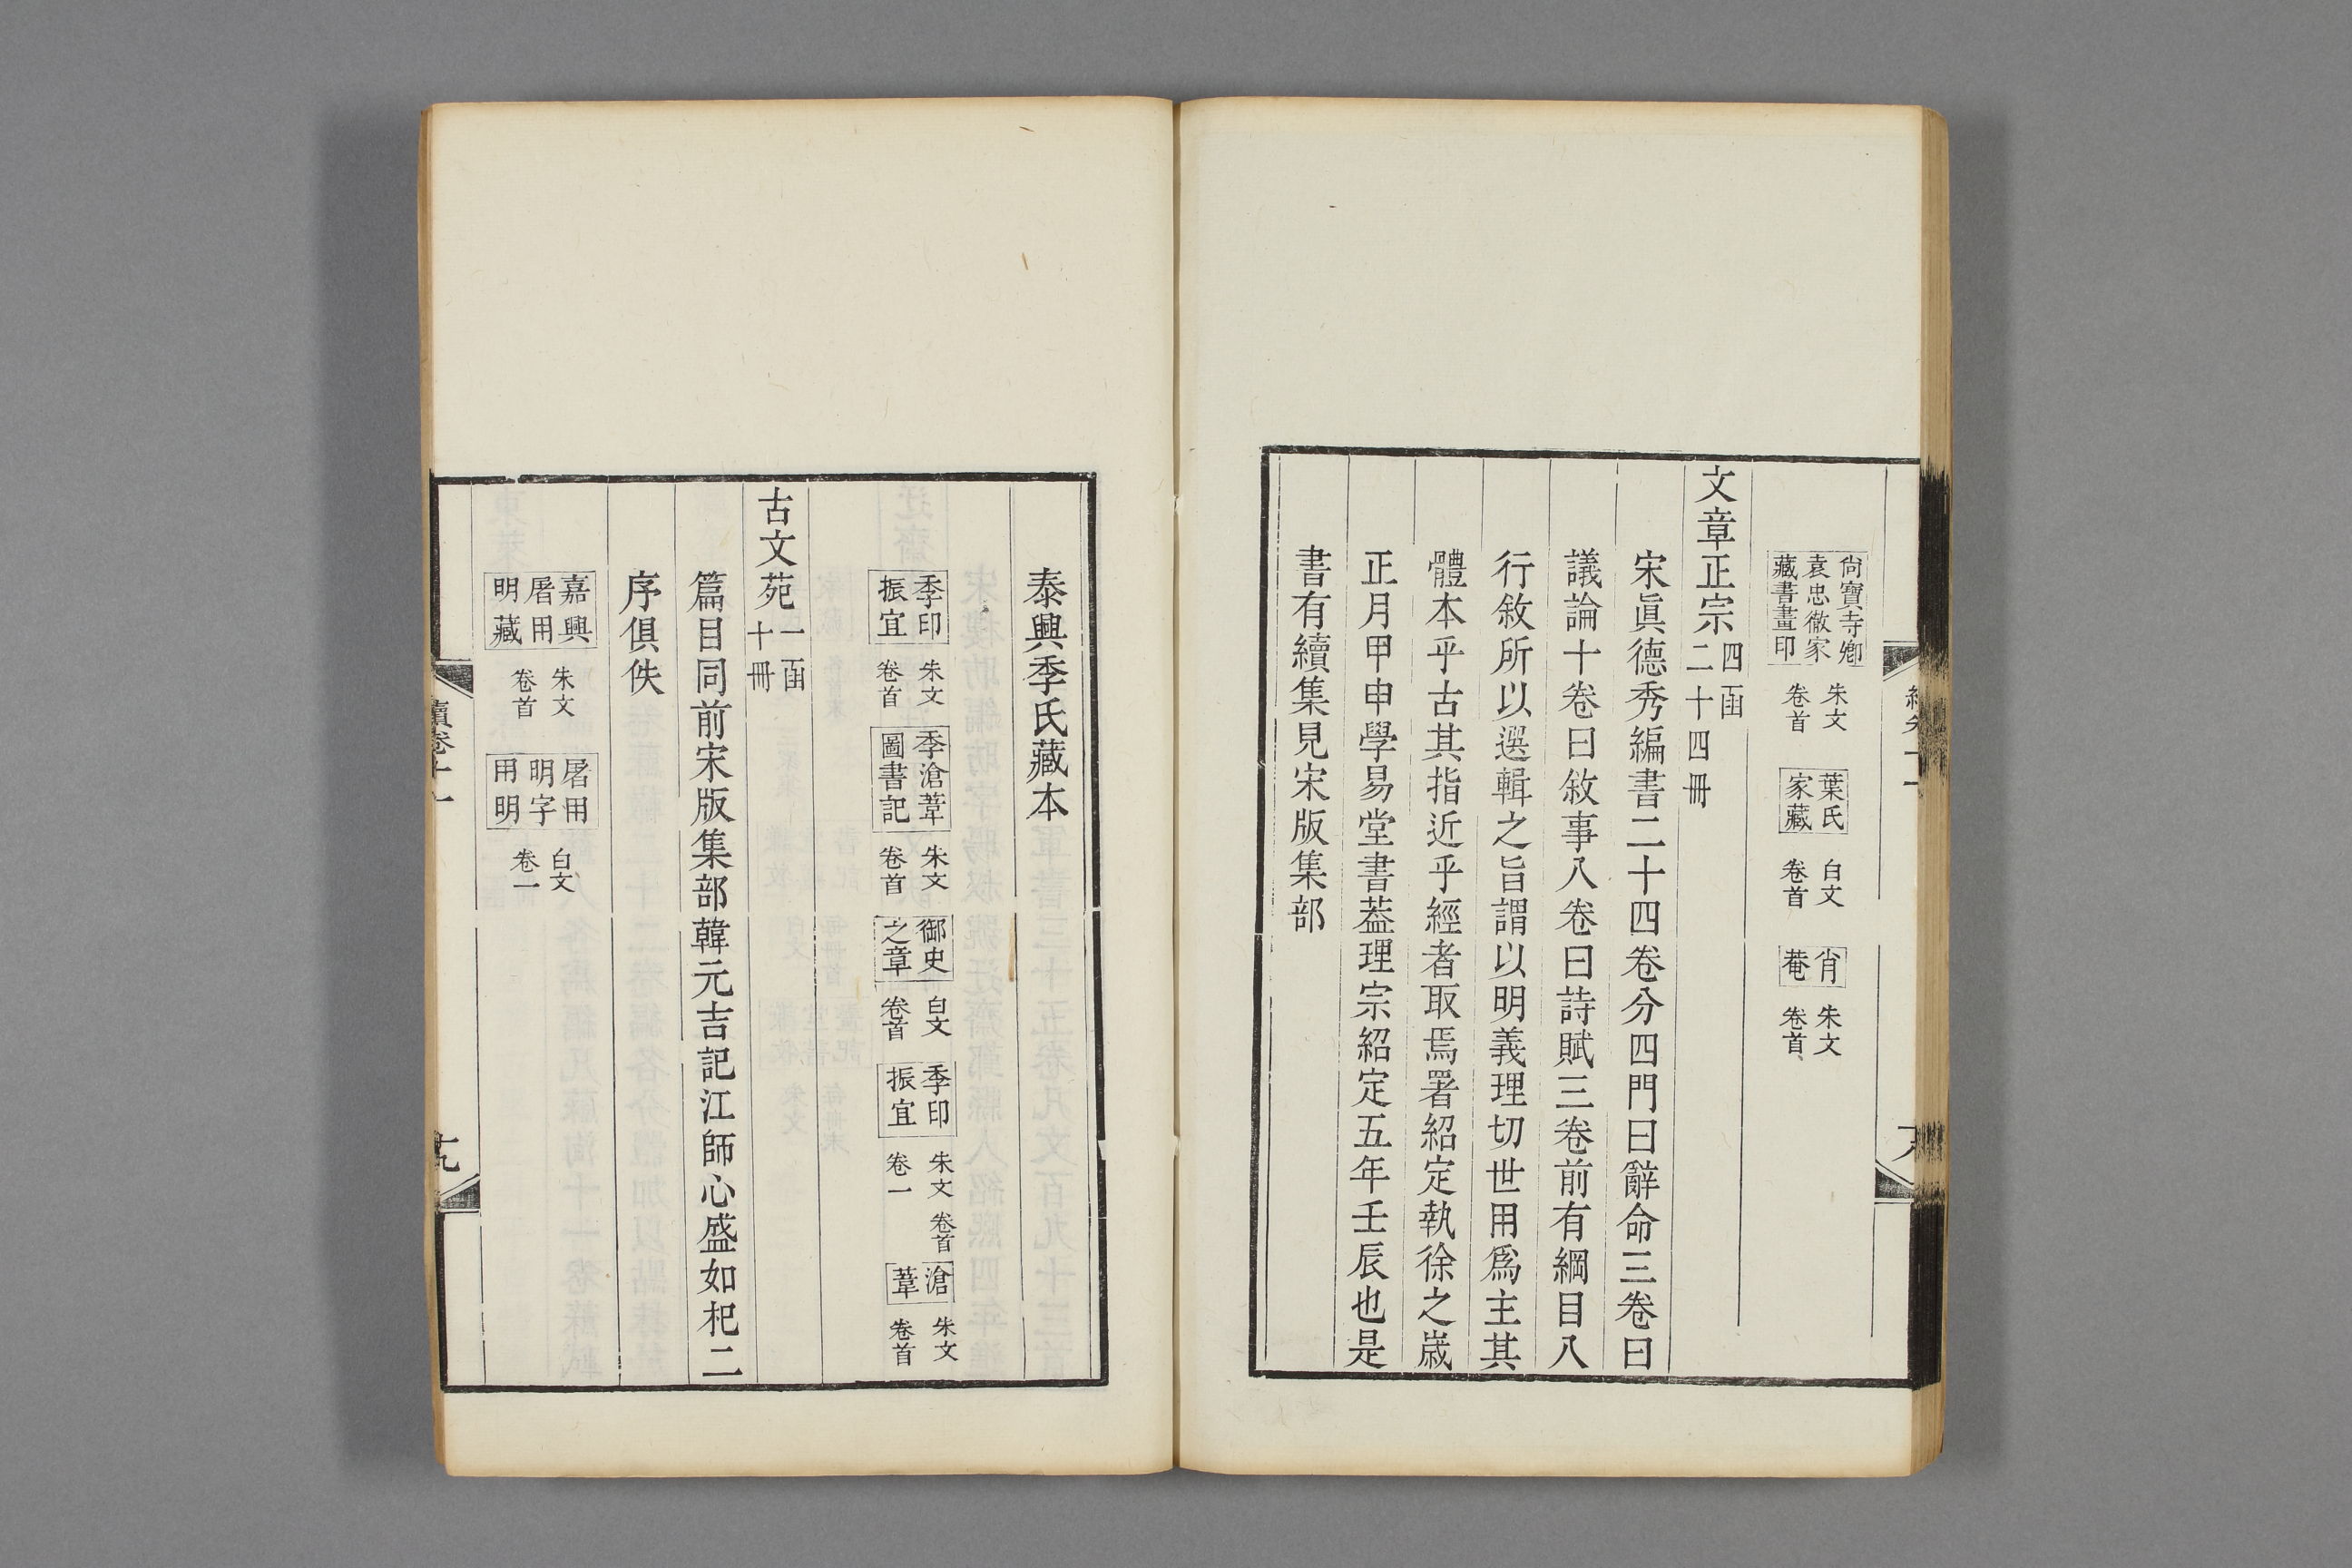 尙寶寺卿
袁忠徹家
藏書畫印
朱文
卷首
葉氏
家藏
白文
卷首
肖
菴
朱文
卷首
文章正宗
四函
二十四冊
宋眞德秀編書二十四卷分四門曰辭命三卷曰
議論十卷曰敘事八卷曰詩賦三卷前有綱目八
行敘所以選輯之旨謂以明義理切世用爲主其
體本乎古其指近乎經者取焉署紹定執徐之歲
正月甲申學易堂書葢理宗紹定五年壬辰也是
書有續集見宋版集部
泰興季氏藏本
季印
振宜
朱文
卷首
季滄葦
圖書記
朱文
卷首
御史
之章
白文
卷首
季印
振宜
朱文 卷首
卷一
滄
葦
朱文
卷首
古文苑
一函
十冊
篇目同前宋版集部韓元吉記江師心盛如杞二
序俱佚
嘉興
屠用
明藏
朱文
卷首
屠用
明字
用明
白文
卷一
續卷十一
十九